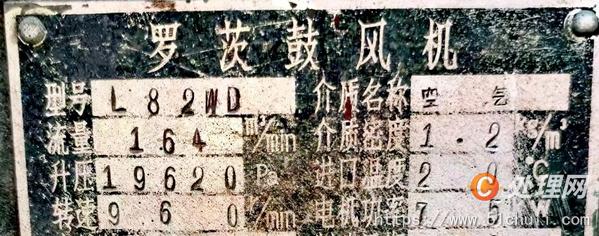 罗茨鼓风机
型号 L82WD 介质名称 空气
流量 164 m³/min 介质密度 1.2 /m³
升压 19620 Pa 进口温度 20 °C
转速 960 /min 电机功率 75
处理网
https://www.51chuli.com